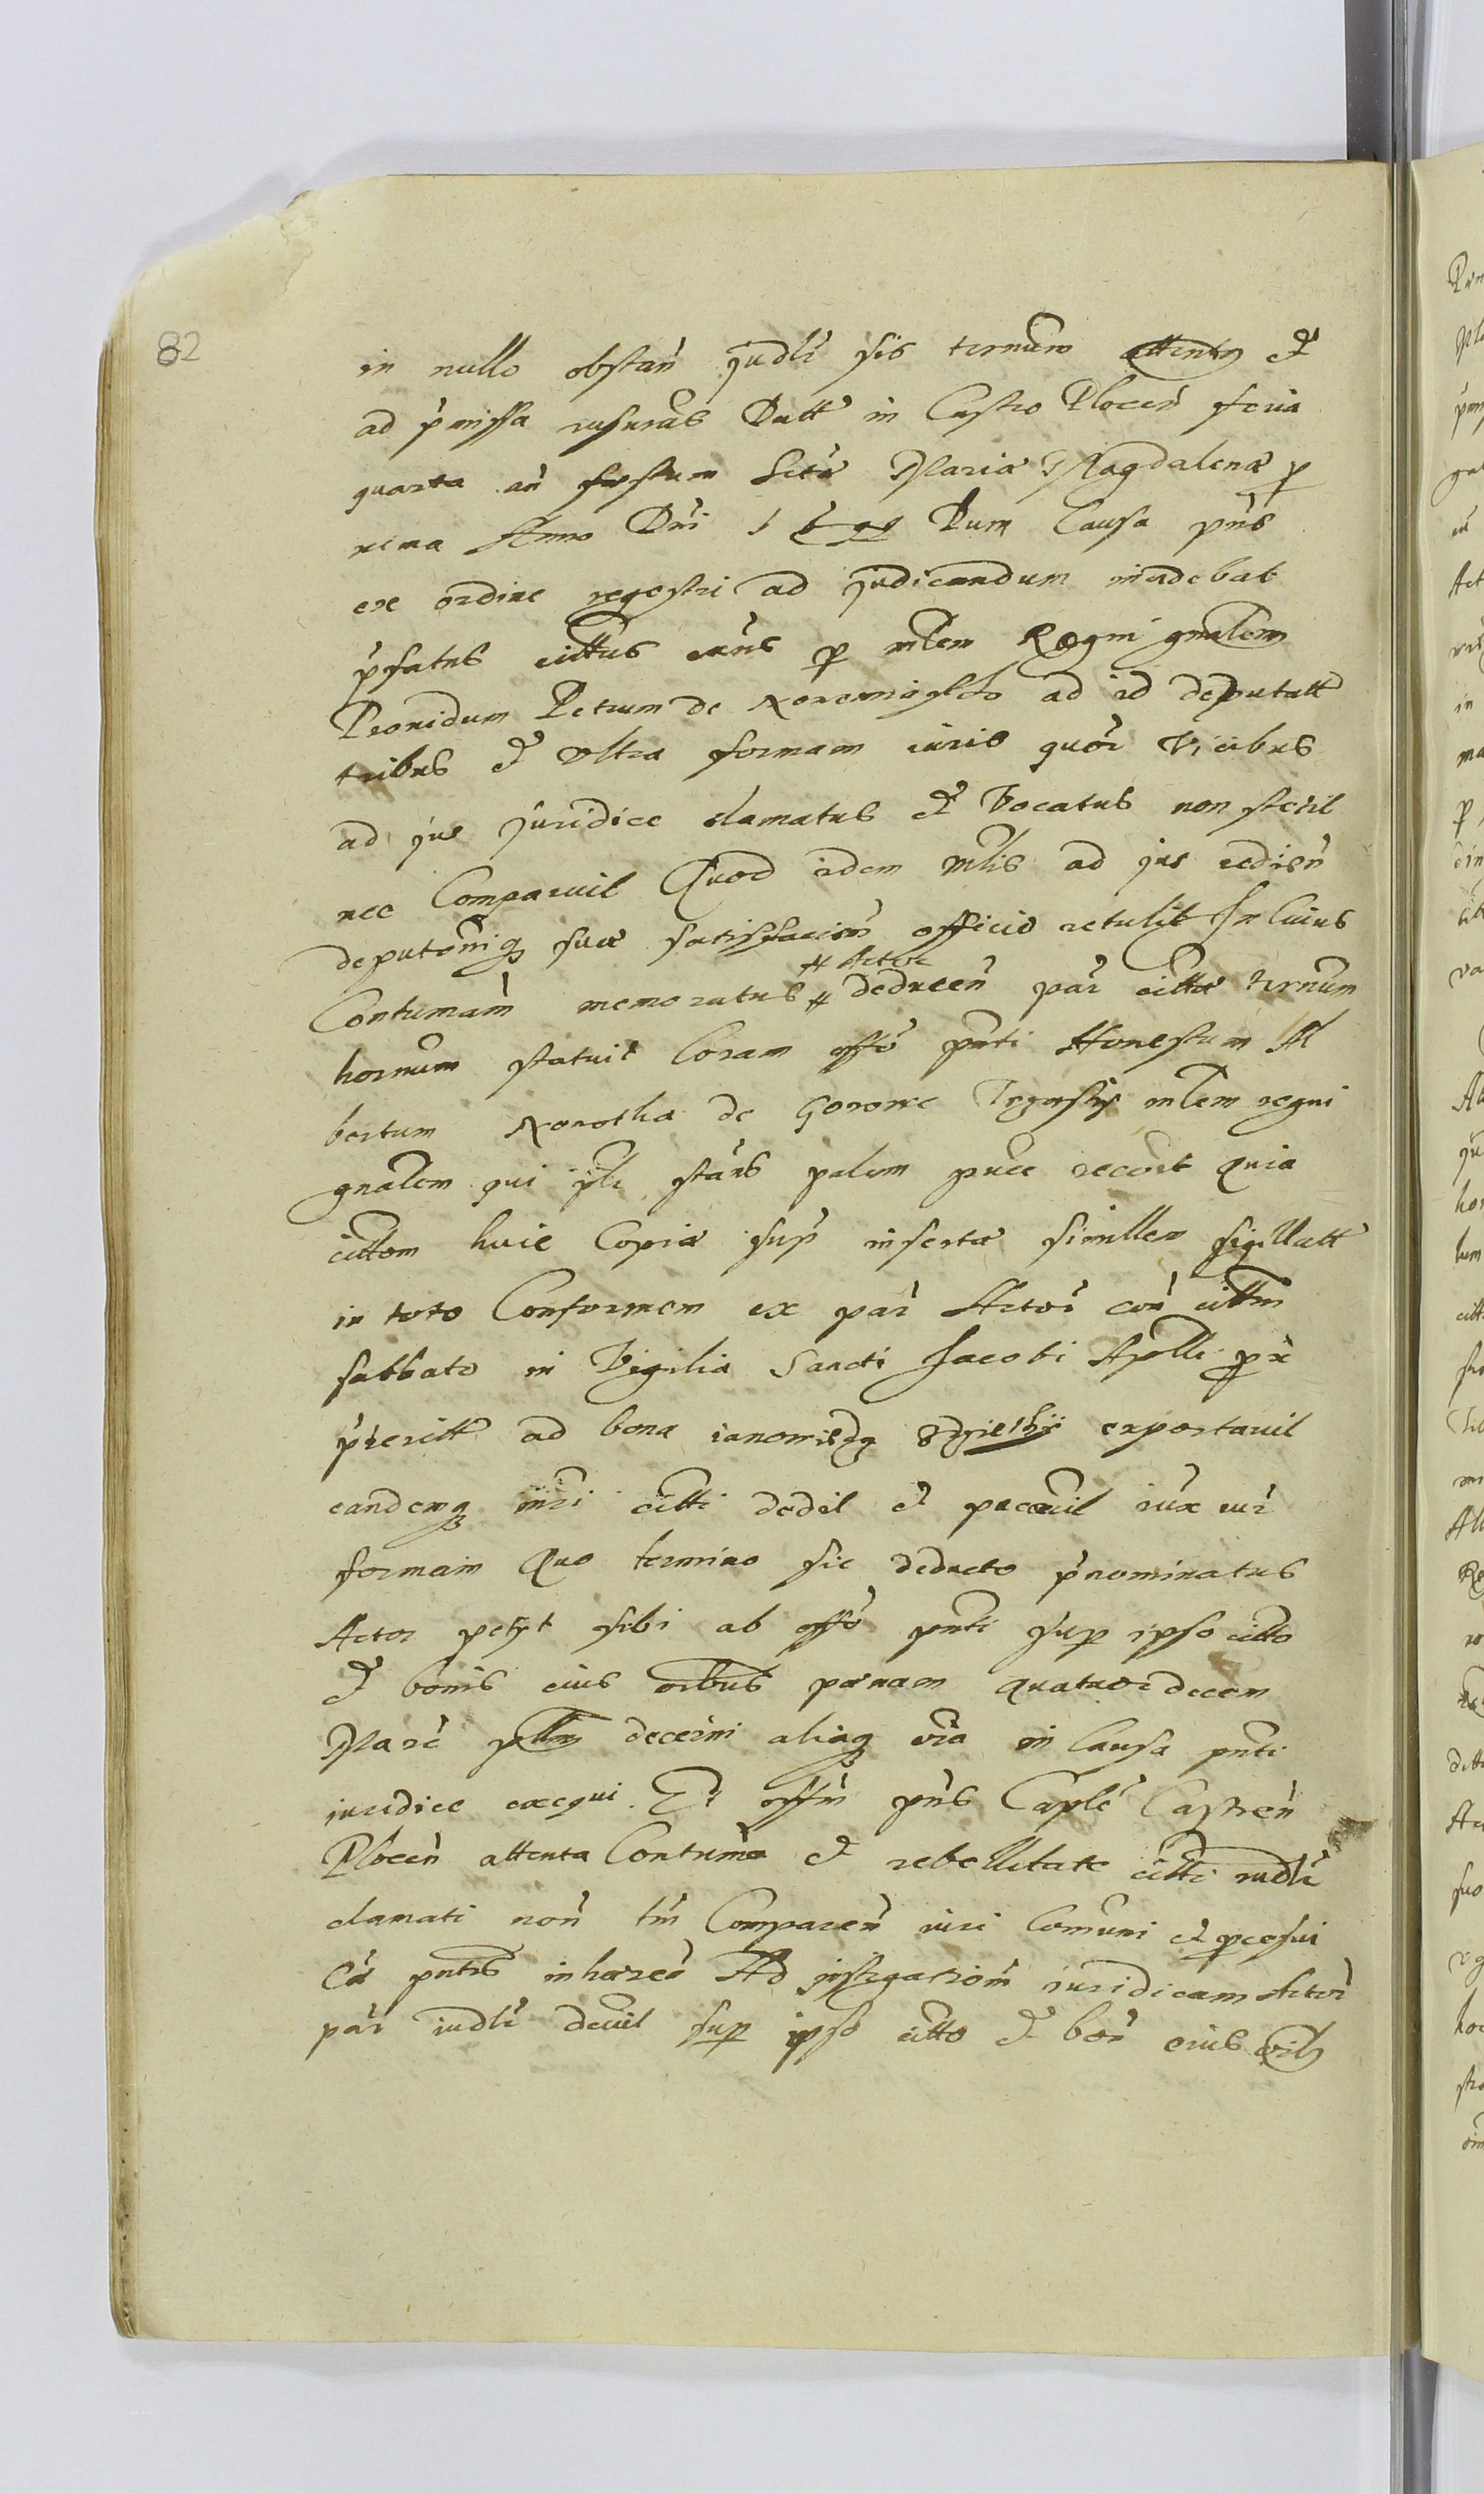 82
in nullo obstañ judli sis ternum attentus et
ad pmissa rusuras Datt in Castro Plocen feria
quarta añ festum Sctæ Mariæ Magdalenæ p
xima Anno Dni Dum Causa pns
exe ordine regestri ad judicandum inadebat
pfatus citatus eius p mlem Regni gnalem
Prouidum Petrum de ad id deputatt
tribus et Vltra formam iuris quor Vicibus
ad jus juridice clamatus et Vocatus non stetit
nec Comparuit Quod idem mlis ad jus
suæ satisfacien officio retulit In Cuius
Contumam memoratus # deducen par cittæ ternum
# Actor
hornum statuit Coram offo pnti Honestum Al
bertum de mlem regni
gnalem qui ibi stans palam puce recoit Quia
cittom huic Copiæ sup insertæ similler sigillatt
in toto Conformem ex par Actor con cittm
sabbato in Vigilia Sancti Jacobi Aplli px
pteritt ad bona exportauit
eandemq citti dedit et iux iur
formam Quo termino sic deducto pnominatus
Actor petyt sibi ab offo pnti sup ipso citto
et bonis eius oibus pænam quatuordecem
Marc decerni aliaq oia in Causa pnti
iuridice exequi. Et offm pns Caple Castren
Plocen attenta Contuma et rebellitate citti iudli
clamati non tm Comparen iuri Comuni et pcesui
Cæ pntis inhæreo Ad instigationm iuridicam Actor
par iudli deuil sup ipso citto et bor eius oib9